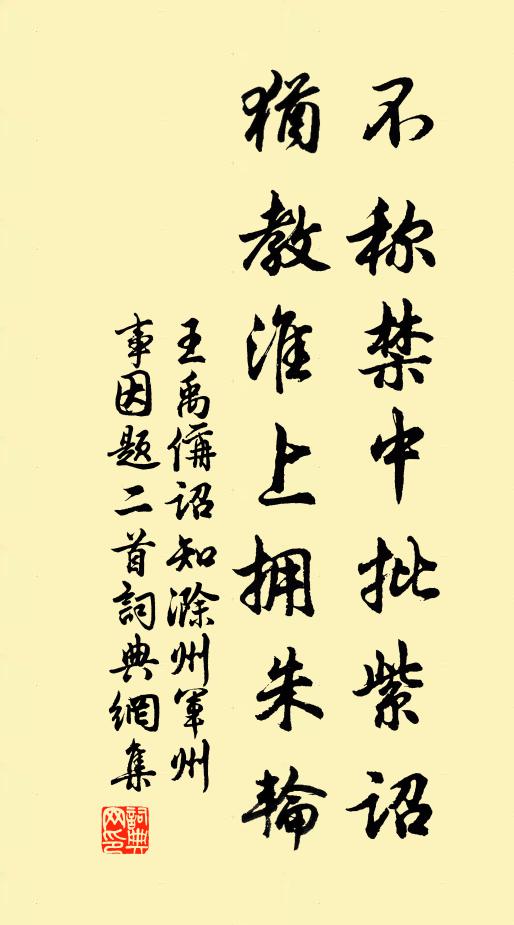 不称禁中批紫诏
猶教淮上拥朱輪
王禹偁诏知滁州軍州
事因题二首詞典網集
詞典
网印